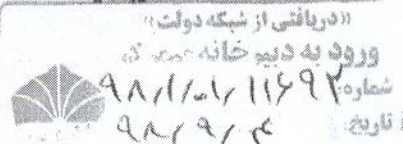 ((دریافتی از شبکه دولت))
ورود به دبیرخانه
شماره: ۹۸/۱/۰۱/۱۱۶۹۲
تاریخ: ۹۸/۹/۰۴